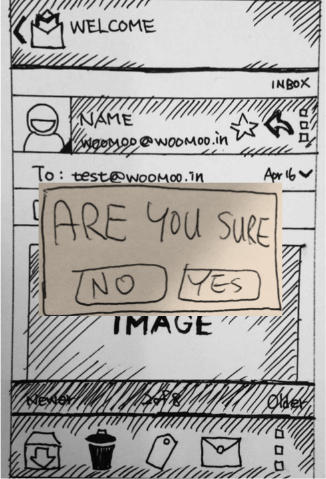 WELCOME
INBOX
NAME
woomoo@woomoo.in
To: test@woomoo.in Apr 16
ARE YOU SURE
NO YES
IMAGE
Newer 2 of 8 Older